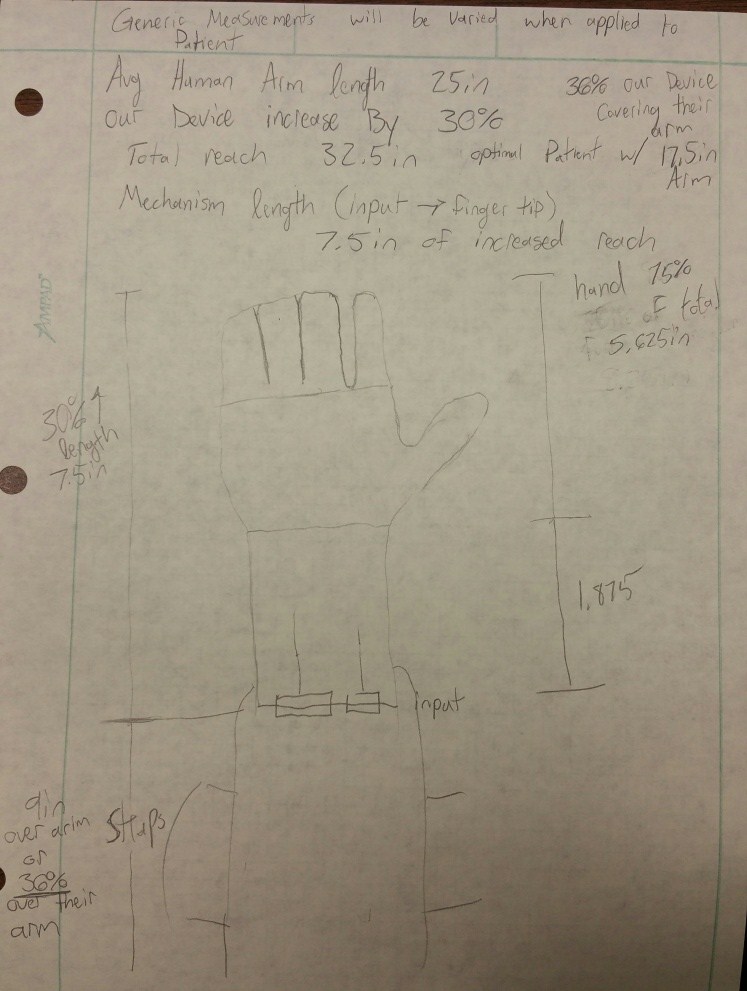 Generic Measurements will be varied when applied to
Patient
Avg Human Arm length 25in
our Device increase By 30%
Total reach 32.5in
36% our Device
Covering their
arm
optimal Patient w/ 17.5in
Arm
Mechanism length (input → finger tip)
7.5in of increased reach
AMPAD
hand 75%
total
5.625in
30% ↑
length
7.5in
1.875
input
Straps
9in
over arm
or
36%
over their
arm